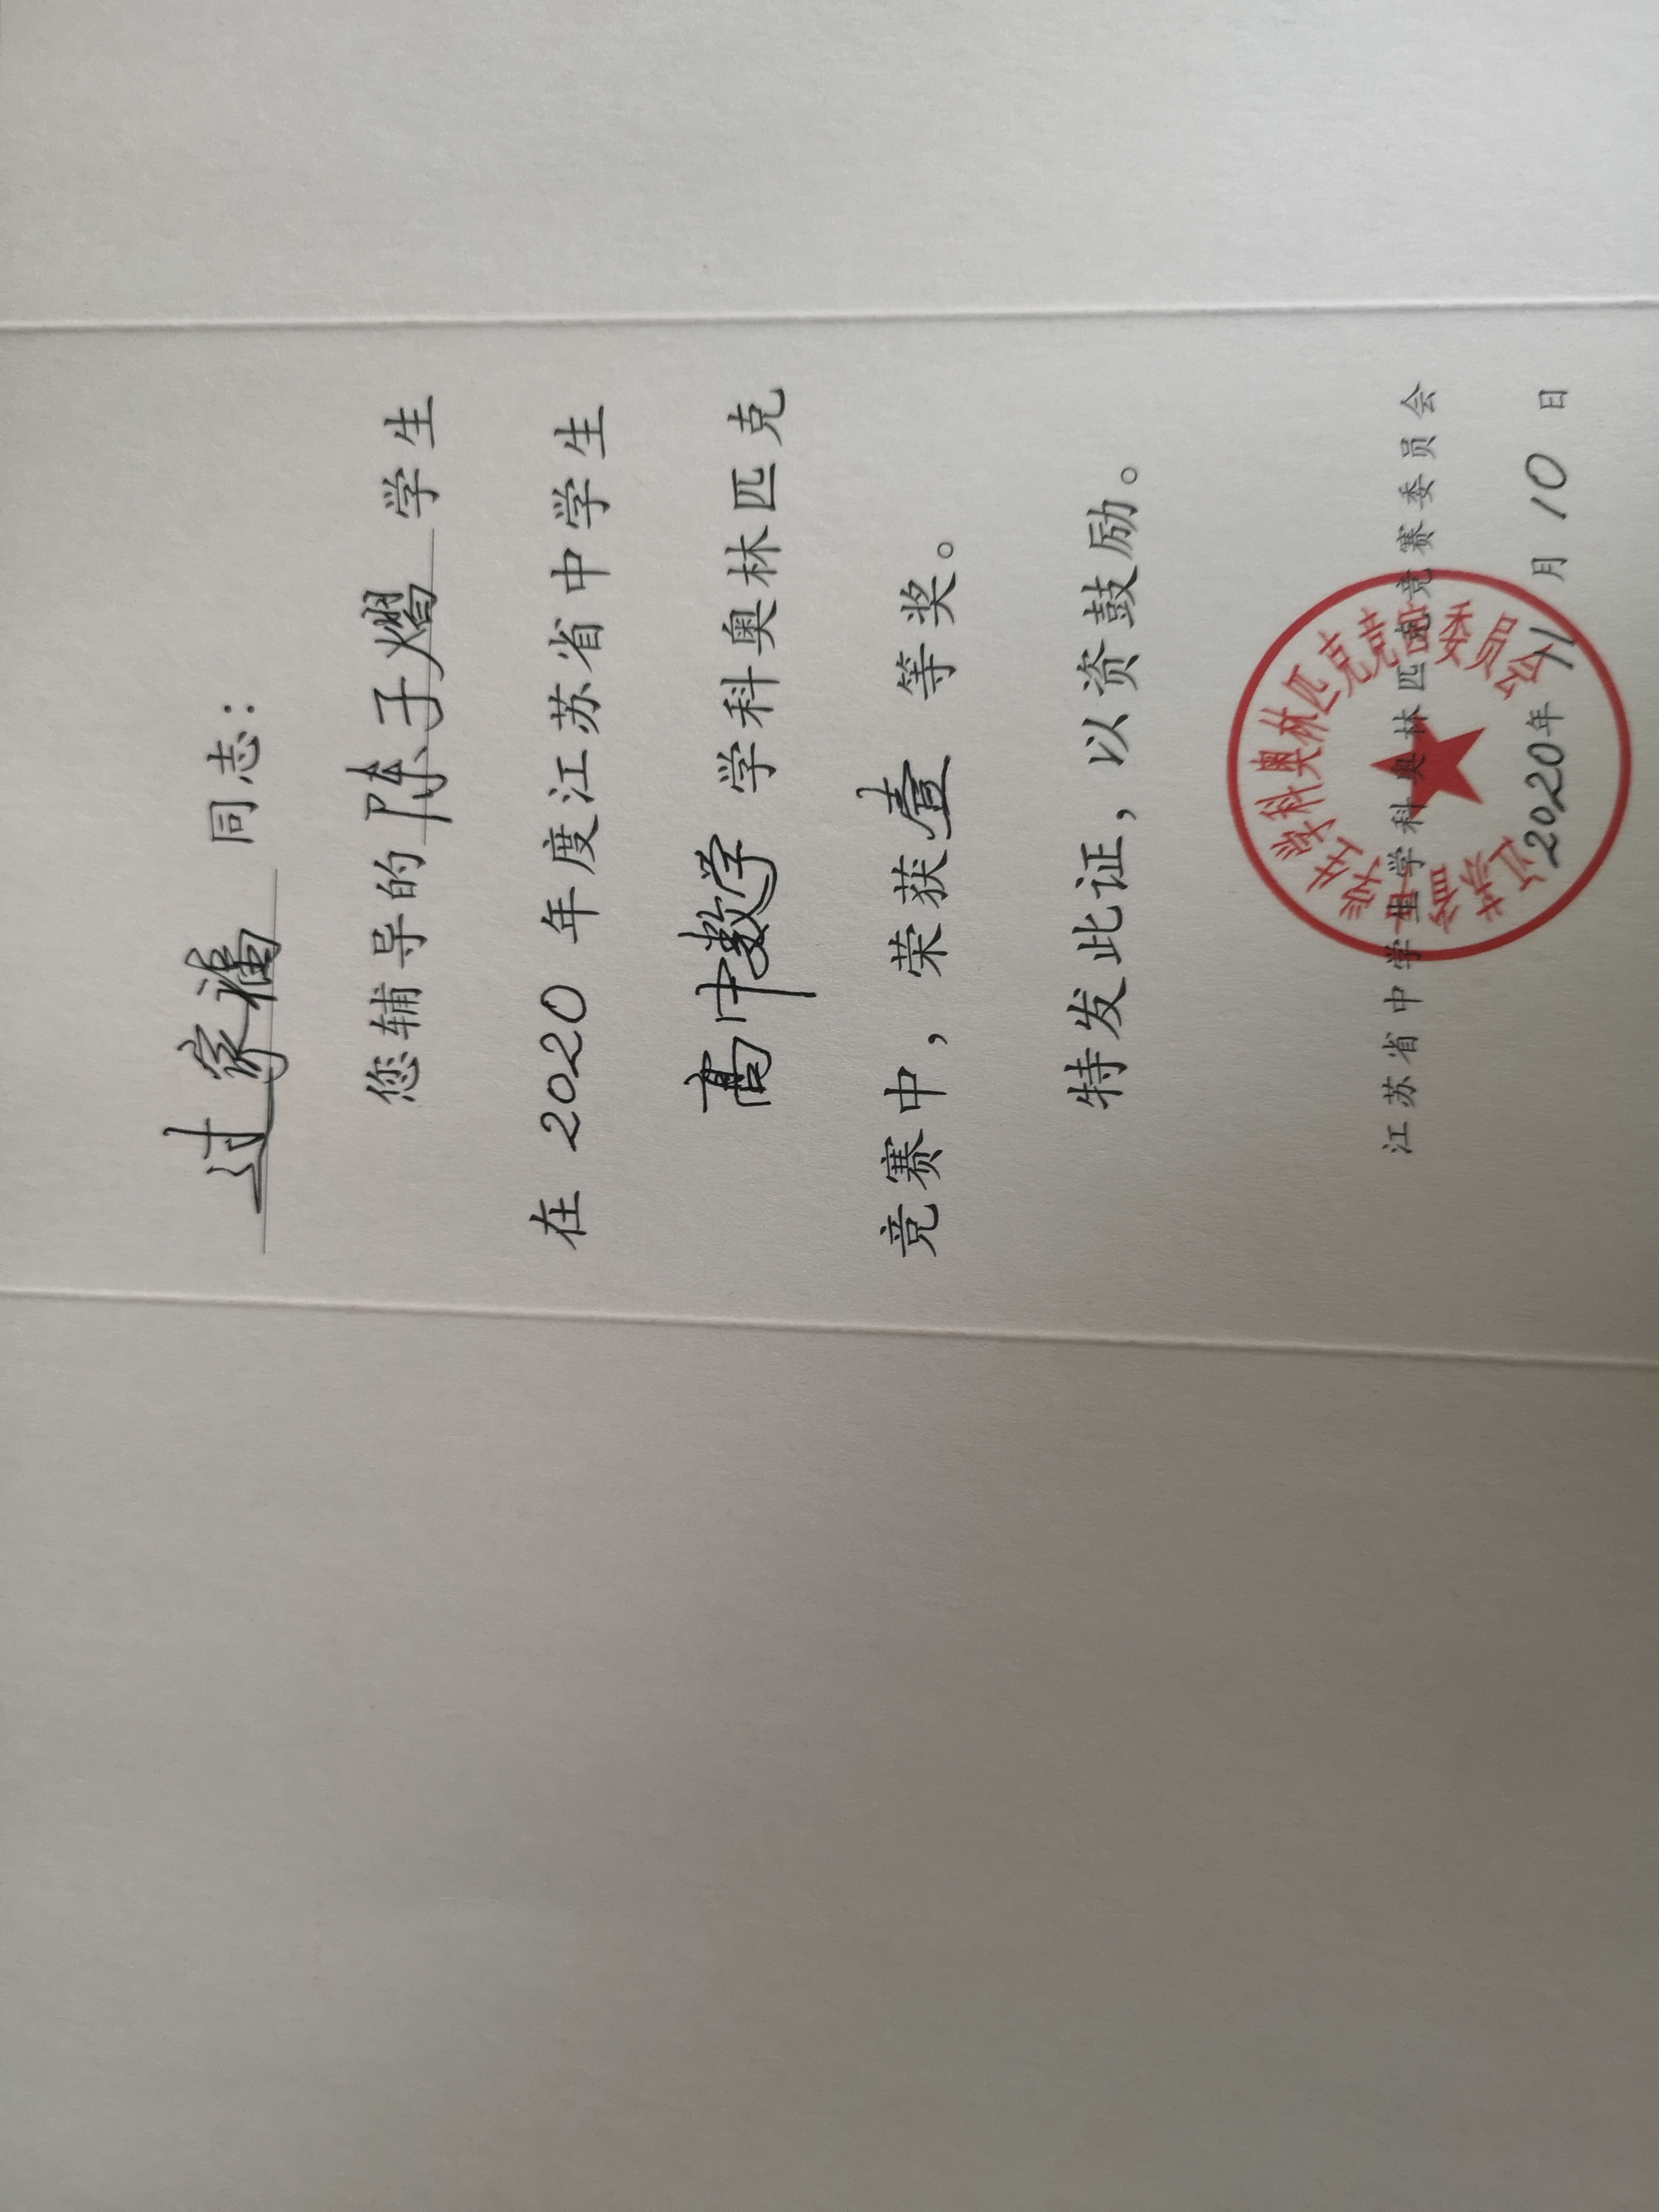 过家福 同志：
您辅导的 陈子熠 学生
在 2020 年度江苏省中学生
高中数学 学科奥林匹克
竞赛中，荣获 壹 等奖。
特发此证，以资鼓励。
江苏省中学生学科奥林匹克竞赛委员会
2020年 11 月 10 日
江苏省中学生学科奥林匹克竞赛委员会